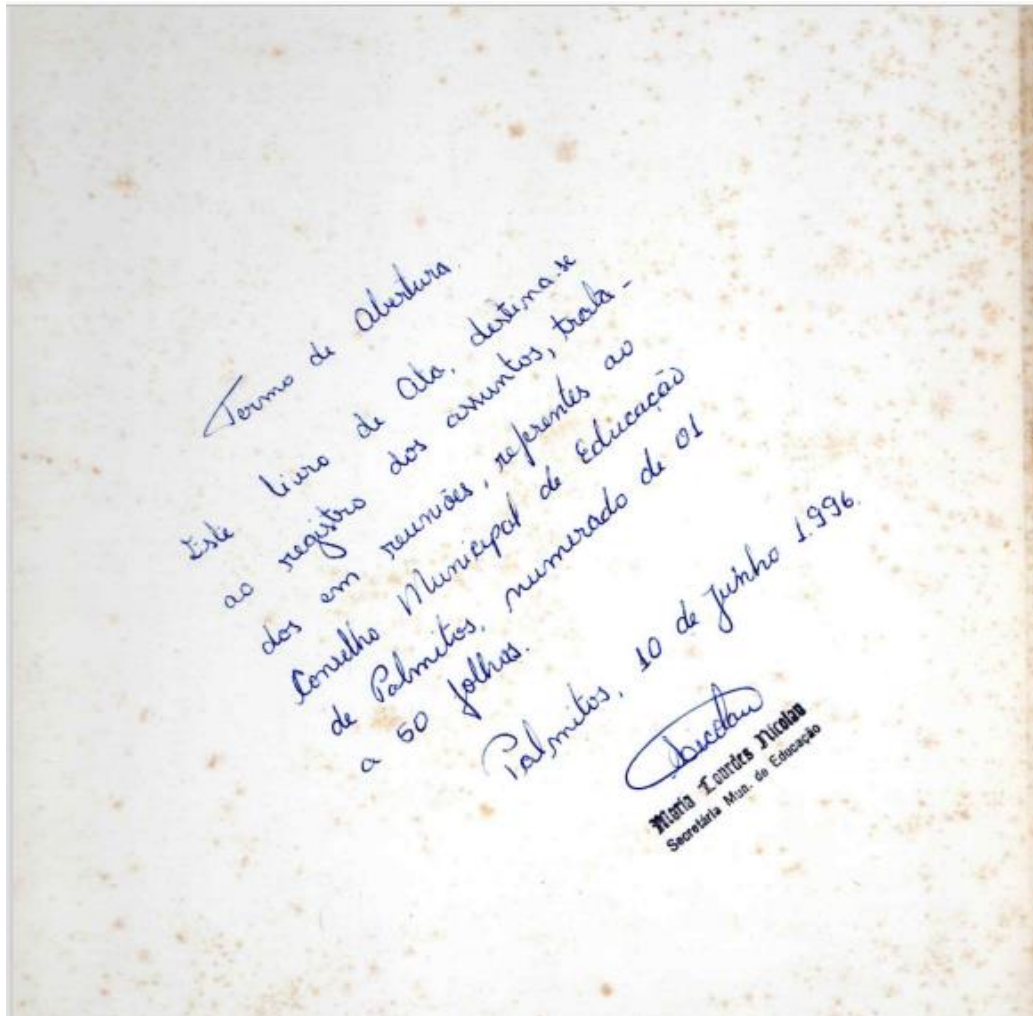 Termo de Abertura.
Este livro de Ata, destina-se
ao registro dos assuntos, trata-
dos em reuniões, referentes ao
Conselho Municipal de Educação
de Palmitos, numerado de 01
a 50 folhas.
Palmitos, 10 de junho 1.996.
Nicolau
Maria Lourdes Nicolau
Secretária Mun. de Educação